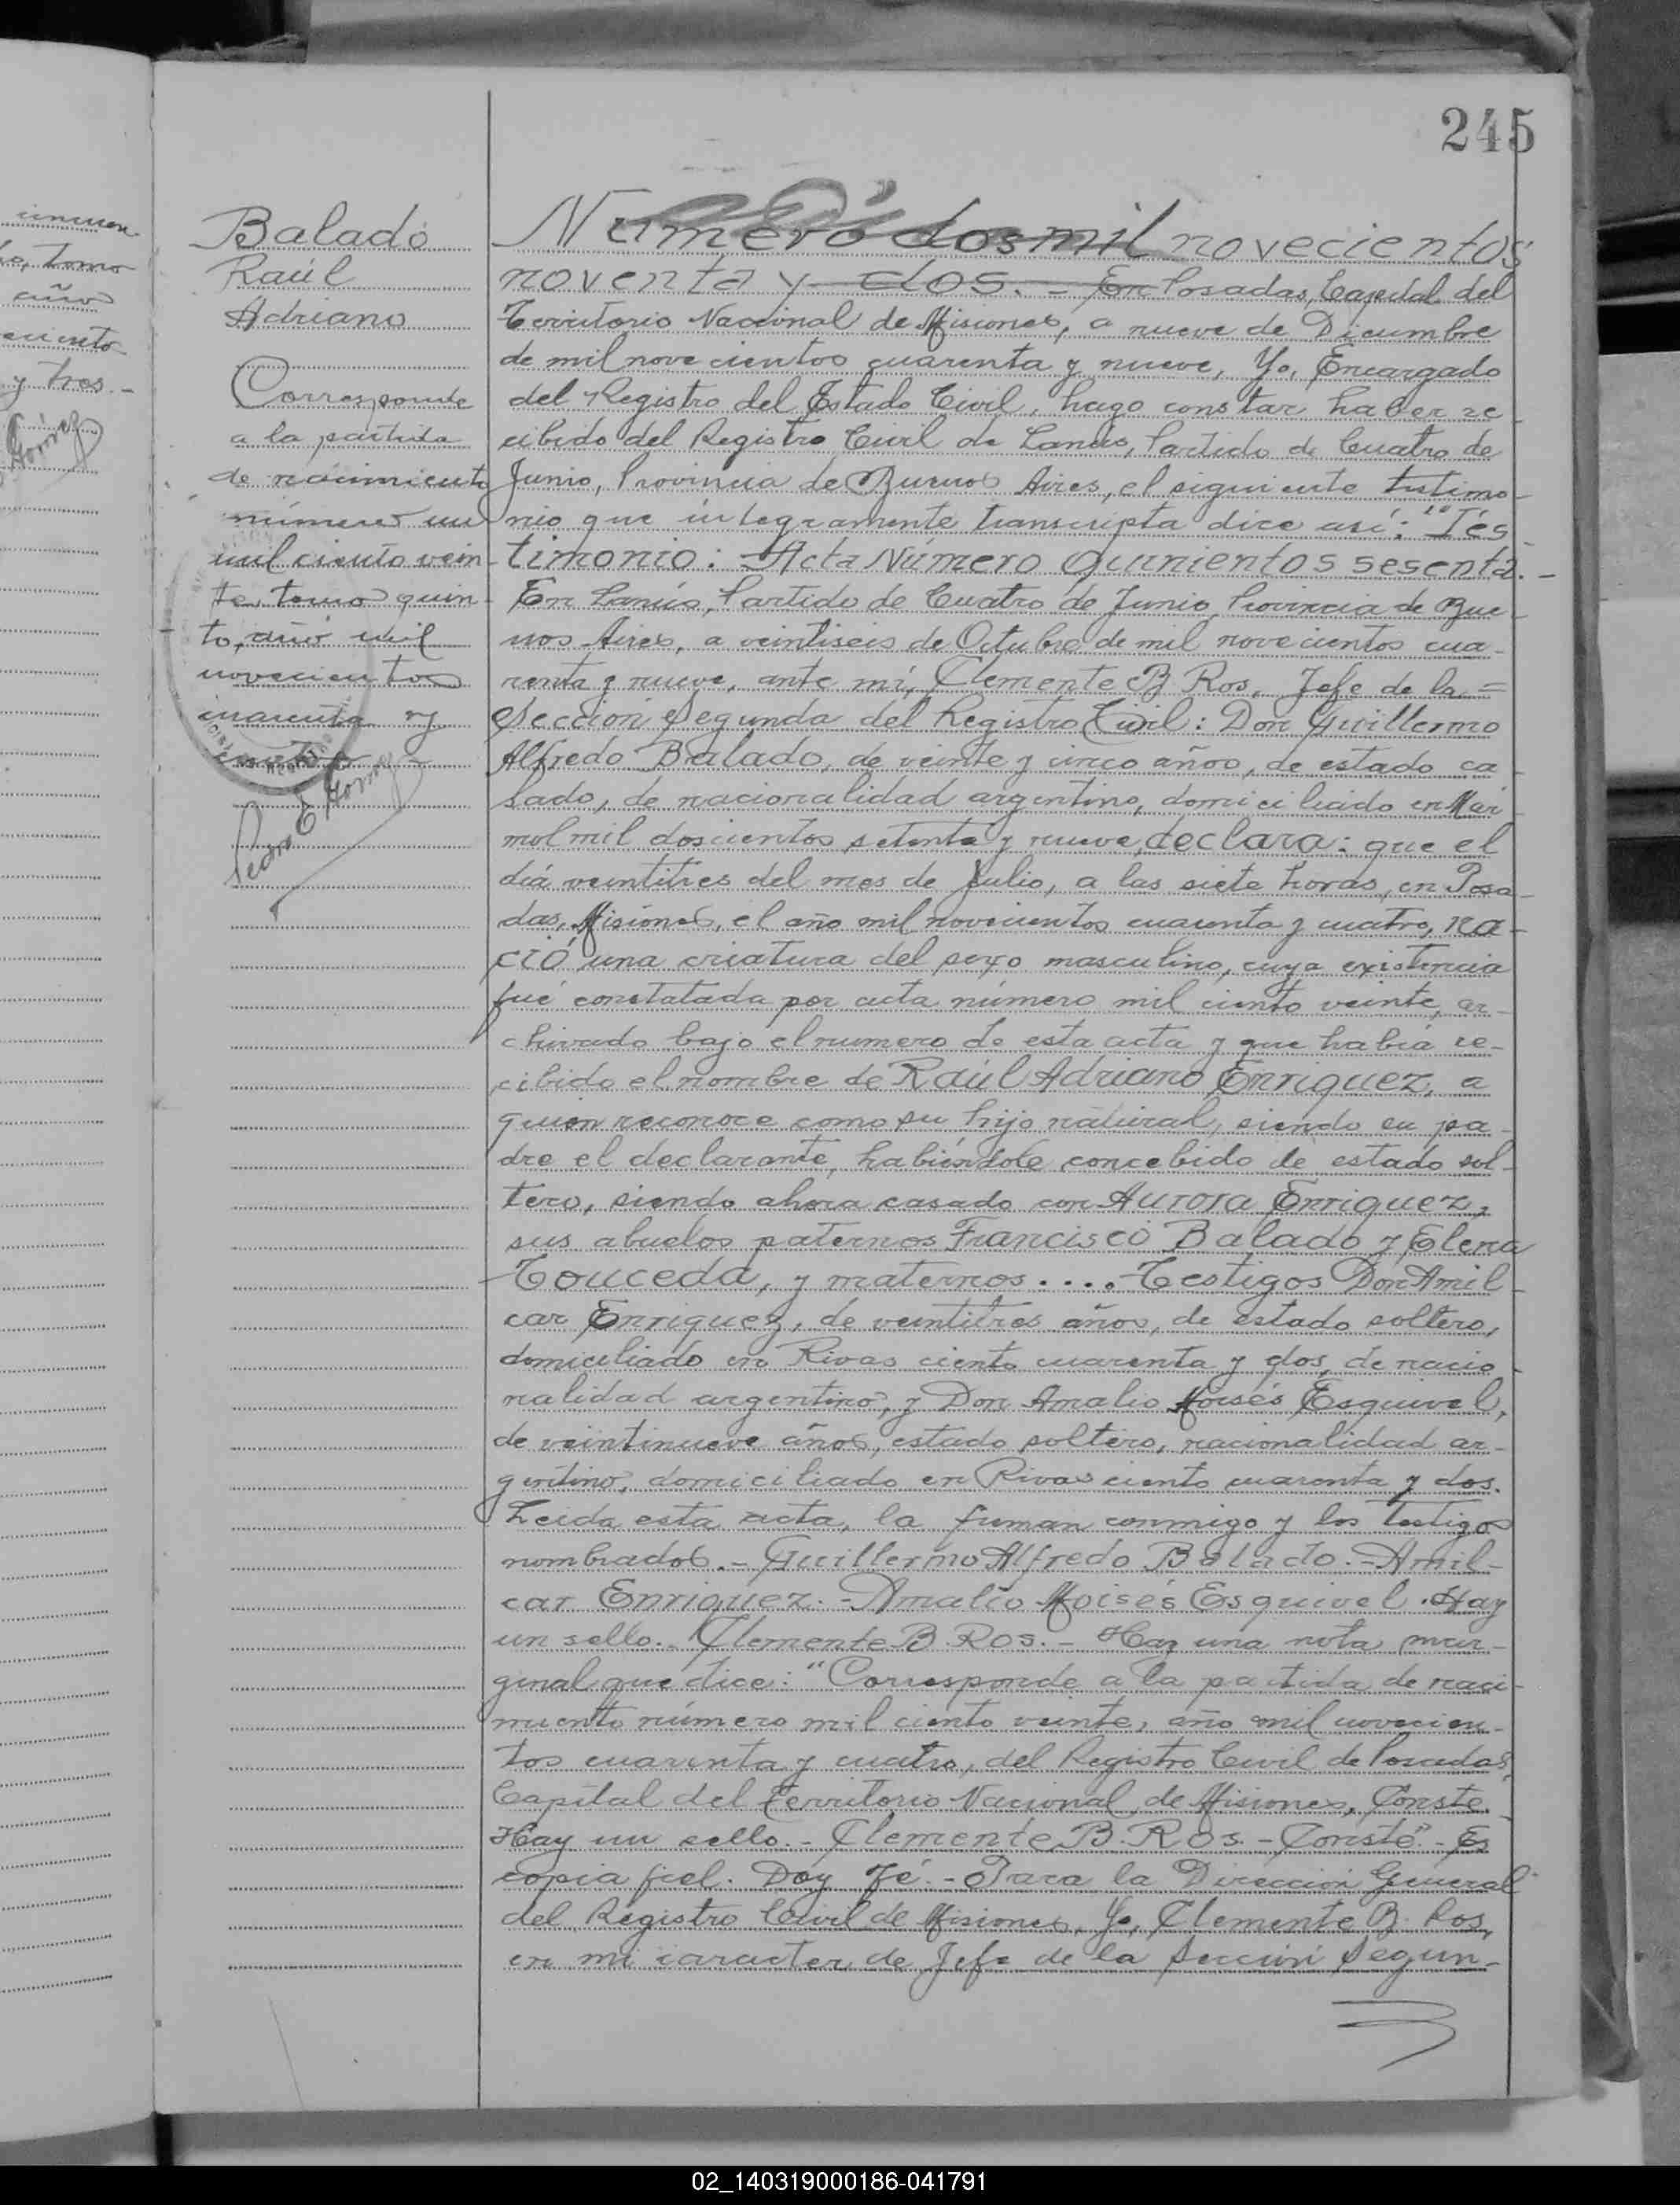 245
cincuen-
tomo
año
y tres.-
Gómez
Balado
Raúl
Adriano
Corresponde
a la partida
de nacimiento
número un
mil ciento vein-
te, tomo quin-
to, año mil
novecientos
cuarenta y
cuatro
Pedro E Gómez
Número dos mil novecientos
noventa y dos.- En Posadas, Capital del
Territorio Nacional de Misiones, a nueve de Diciembre
de mil novecientos cuarenta y nueve, Yo, Encargado
del Registro del Estado Civil, hago constar haber re-
cibido del Registro Civil de Lanús, Partido de Cuatro de
Junio, Provincia de Buenos Aires, el siguiente testimo-
nio que integramente transcripta dice así: "Tes-
timonio: Acta Número quinientos sesenta.-
En Lanús, Partido de Cuatro de Junio, Provincia de Bue-
nos Aires, a veintiseis de Octubre de mil novecientos cua-
renta y nueve, ante mí, Clemente B Ros, Jefe de la =
Sección Segunda del Registro Civil: Don Guillermo
Alfredo Balado, de veinte y cinco años, de estado ca-
sado, de nacionalidad argentino, domiciliado en Mar-
mol mil doscientos setenta y nueve, declara: que el
día veintitres del mes de Julio, a las siete horas, en Posa-
das, Misiones, el año mil novecientos cuarenta y cuatro, na-
ció una criatura del sexo masculino, cuya existencia
fué constatada por acta número mil ciento veinte, ar-
chivado bajo el numero de esta acta y que había re-
cibido el nombre de Raúl Adriano Enriquez, a
quien reconoce como su hijo natural, siendo su pa-
dre el declarante, habiéndole concebido de estado sol-
tero, siendo ahora casado con Aurora Enriquez,
sus abuelos paternos Francisco Balado y Elena
Touceda, y maternos .... Testigos Don Amil-
car Enriquez, de veintitres años, de estado soltero,
domiciliado en Rivas ciento cuarenta y dos, de nacio-
nalidad argentino, y Don Amalio Moisés Esquivel,
de veintinueve años, estado soltero, nacionalidad ar-
gentino, domiciliado en Rivas ciento cuarenta y dos.
Leida esta acta, la firman conmigo y los testigos
nombrados.- Guillermo Alfredo Balado.- Amil-
car Enriquez.- Amalio Moisés Esquivel. Hay
un sello.- Clemente B. Ros.- Hay una nota mar-
ginal que dice: "Corresponde a la partida de naci-
miento número mil ciento veinte, año mil novecien-
tos cuarenta y cuatro, del Registro Civil de Posadas,
Capital del Territorio Nacional de Misiones, Conste.
Hay un sello.- Clemente B. Ros.- Conste".- Es
copia fiel. Doy Fé.- Para la Dirección General
del Registro Civil de Misiones, Yo, Clemente B. Ros,
en mi caracter de Jefe de la Sección Segun-
02_140319000186-041791